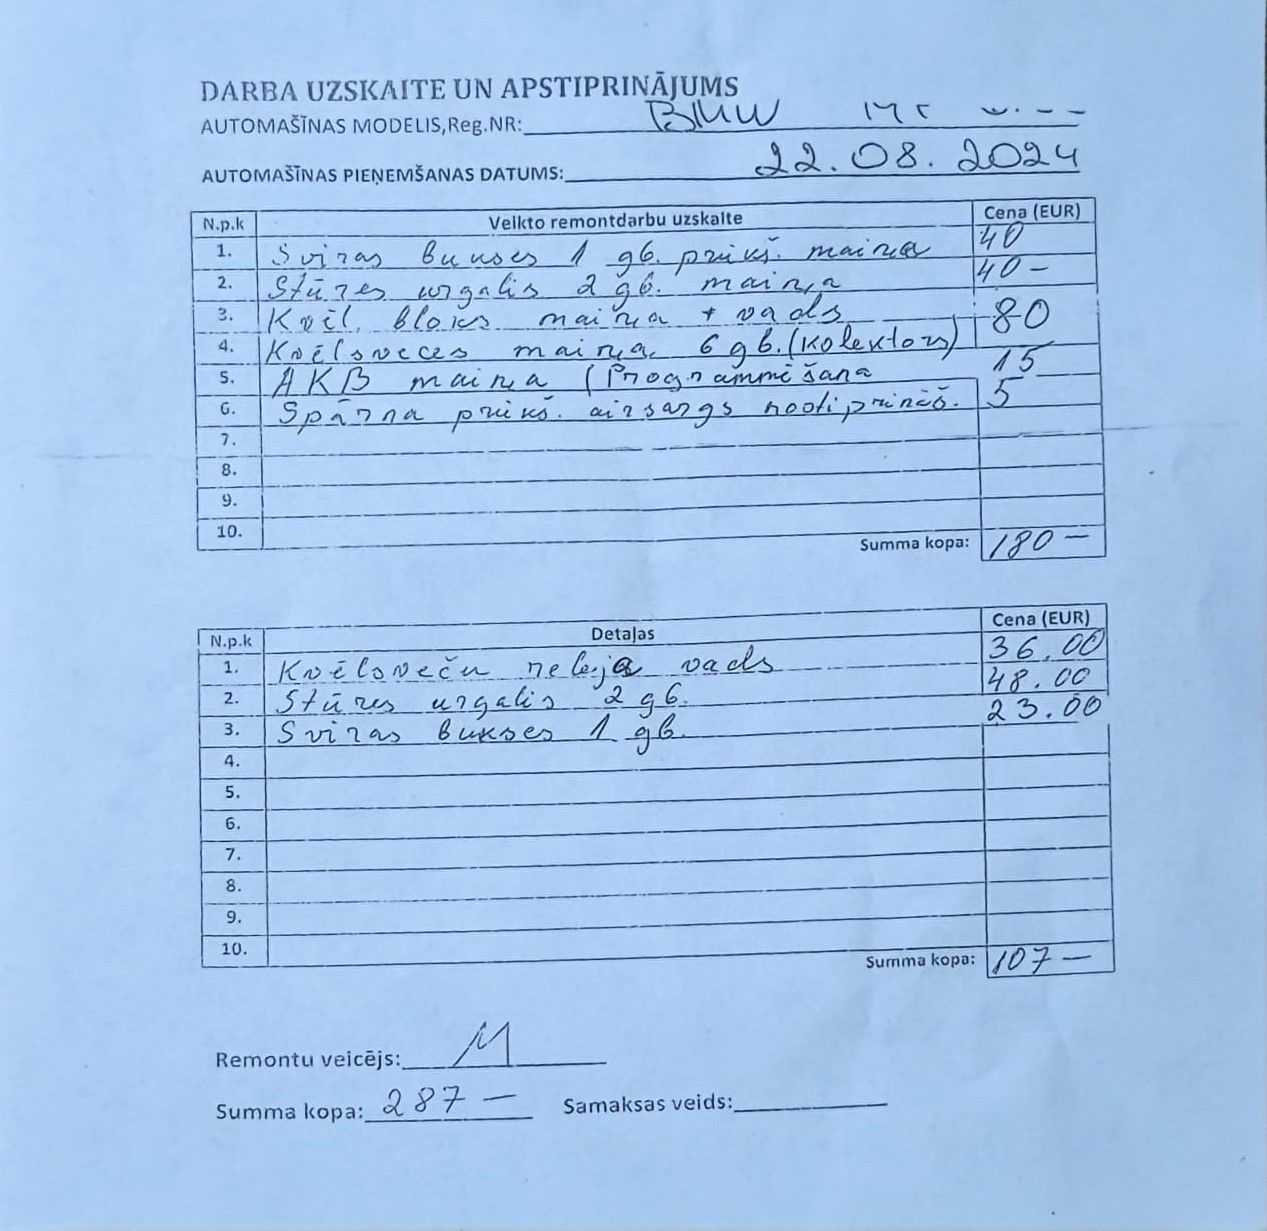 DARBA UZSKAITE UN APSTIPRINĀJUMS
AUTOMAŠĪNAS MODELIS,Reg.NR: BMW
AUTOMAŠĪNAS PIEŅEMŠANAS DATUMS: 22.08.2024
N.p.k Veikto remontdarbu uzskaite Cena (EUR)
1. Sviras bukses 1 gb. priekš. maiņa 40
2. Stūres uzgalis 2 gb. maiņa 40-
3. Kvēl. bloks maiņa + vads 80
4. Kvēlsveces maiņa 6 gb. (Kolektors)
5. AKB maiņa (Programmēšana 15
6. Spārna priekš. aizsargs nostiprināš. 5
7.
8.
9.
10.
Summa kopa: 180-
N.p.k Detaļas Cena (EUR)
1. Kvēlsveču releja vads 36.00
2. Stūres uzgalis 2 gb. 48.00
3. Sviras bukses 1 gb. 23.00
4.
5.
6.
7.
8.
9.
10.
Summa kopa: 107-
Remontu veicējs: M
Summa kopa: 287- Samaksas veids: